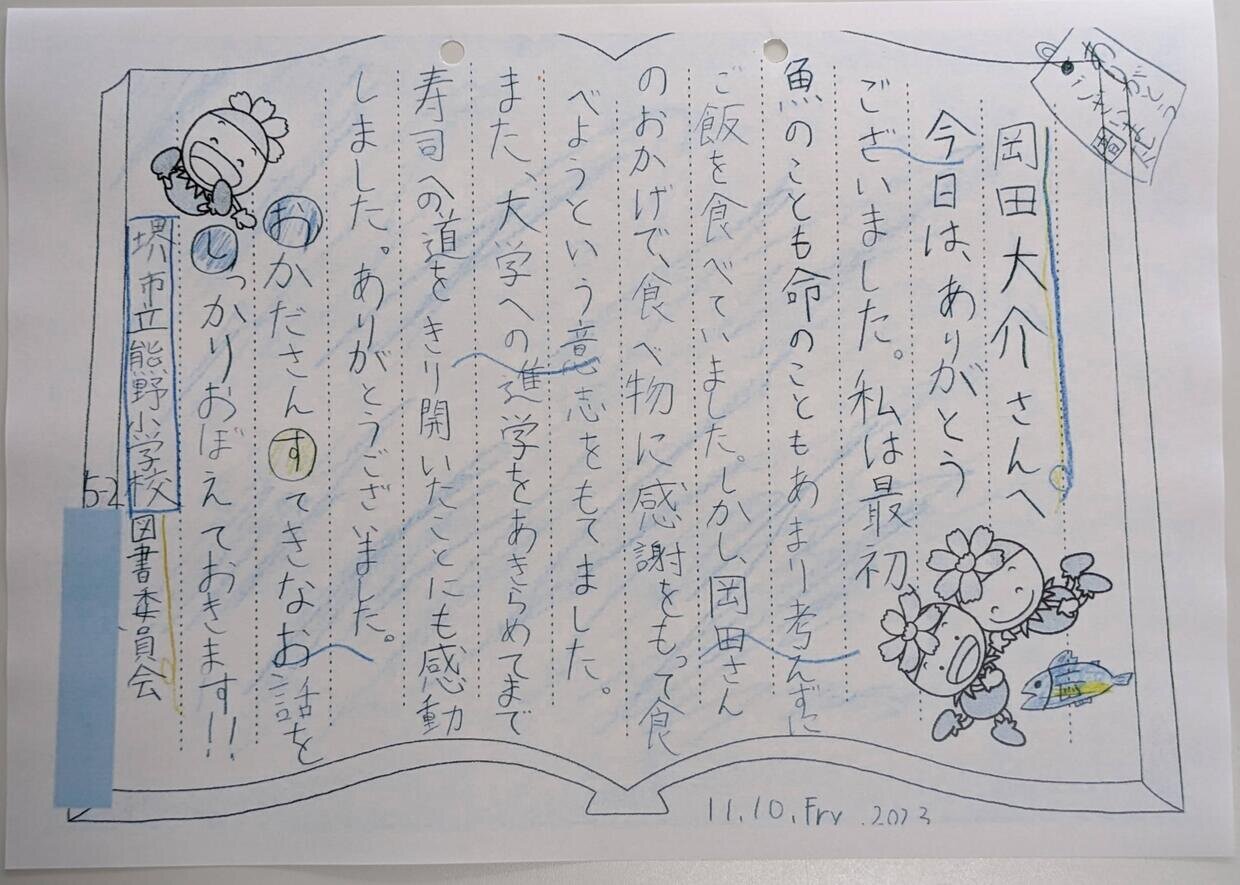 岡田大介さんへ
今日は、ありがとう
ございました。私は最初、
魚のことも命のこともあまり考えずに
ご飯を食べていました。しかし、岡田さん
のおかげで、食べ物に感謝をもって食
べようという意志をもてました。
また、大学への進学をあきらめてまで
寿司への道をきり開いたことにも感動
しました。ありがとうございました。
おかださんすてきなお話を
しっかりおぼえておきます!!
堺市立熊野小学校図書委員会
5-2
11.10.Fry.2023